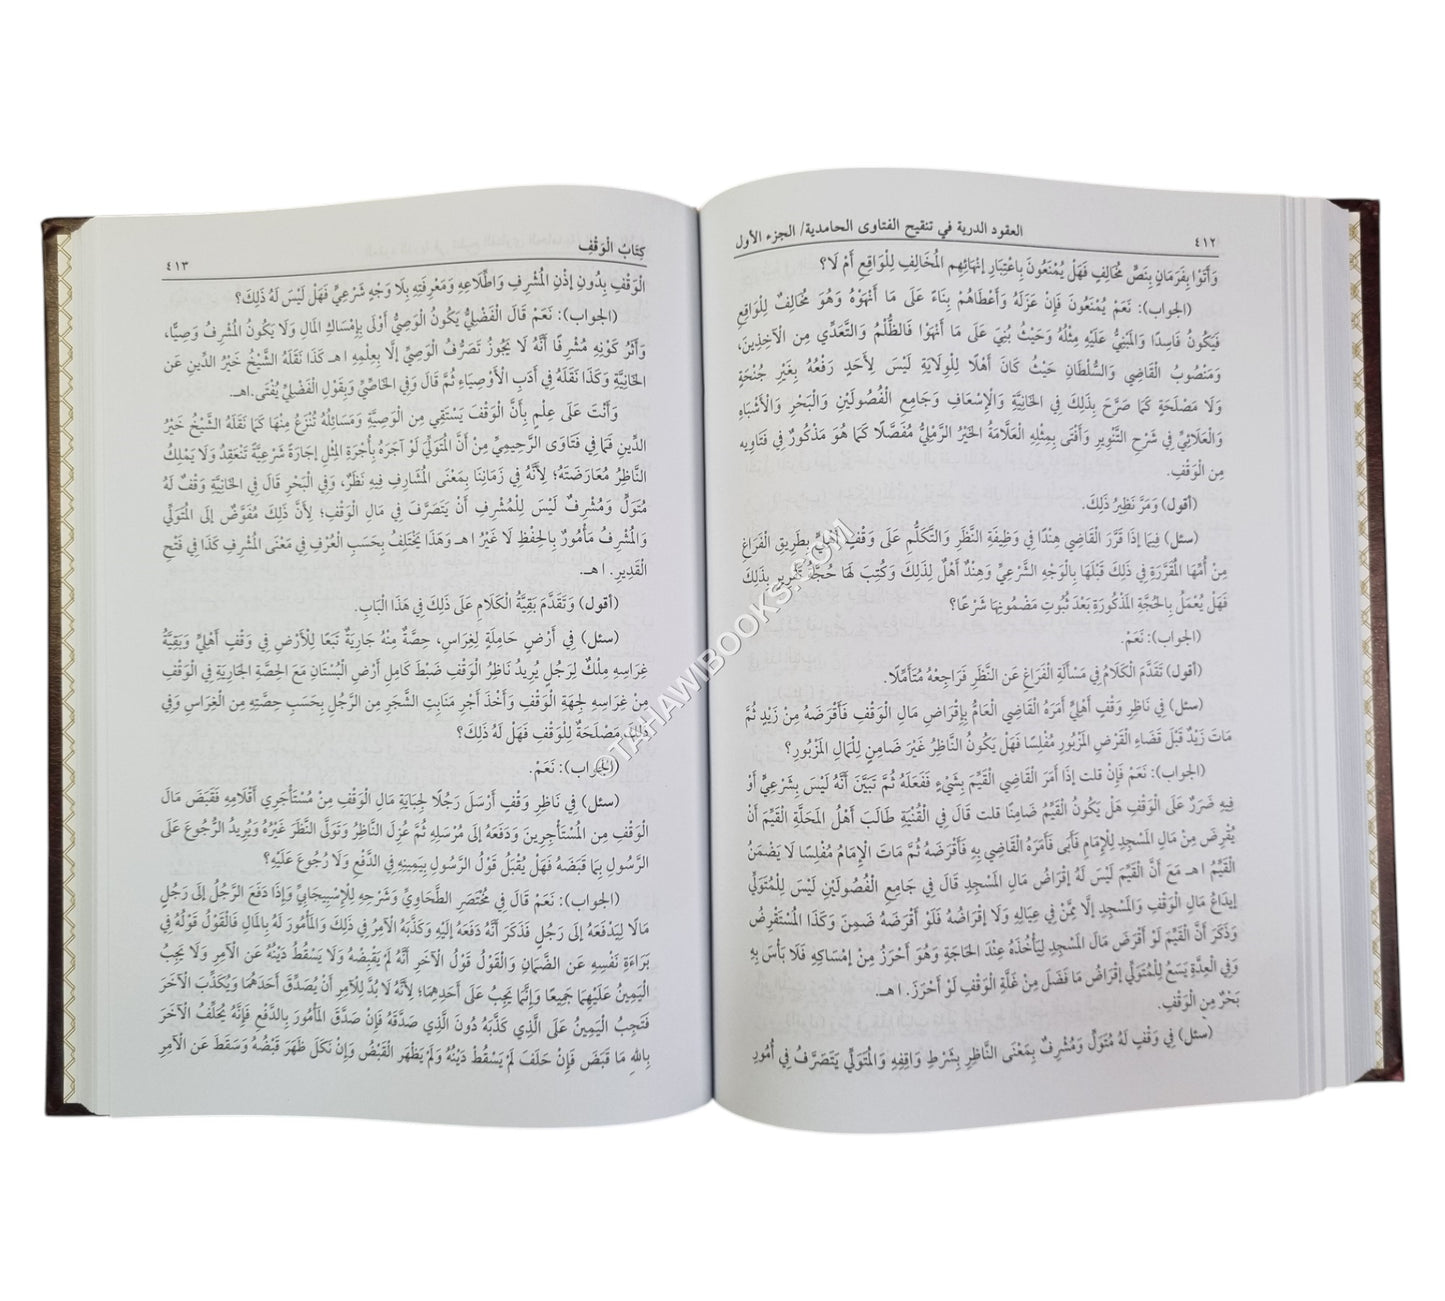 ٤١٢
العقود الدرية في تنقيح الفتاوى الحامدية/ الجزء الأول
وَأَتَوْا بِفَرَمَانٍ بِنَصٍّ مُخَالِفٍ فَهَلْ يُمْنَعُونَ بِاعْتِبَارِ إنْهَائِهِم الْمُخَالِفِ لِلْوَاقِعِ أَمْ لَا؟
(الجواب): نَعَمْ يُمْنَعُونَ فَإِنْ عَزَلَهُ وَأَعْطَاهُمْ بِنَاءً عَلَى مَا أَنْهَوْهُ وَهُوَ مُخَالِفٌ لِلْوَاقِعِ
فَيَكُونُ فَاسِدًا وَالْمَبْنِيُّ عَلَيْهِ مِثْلُهُ وَحَيْثُ بُنِيَ عَلَى مَا أَنْهَوْا فَالظُّلْمُ وَالتَّعَدِّي مِن الْآخِذِينَ،
وَمَنْصُوبُ الْقَاضِي وَالسُّلْطَانِ حَيْثُ كَانَ أَهْلًا لِلْوِلَايَةِ لَيْسَ لِأَحَدٍ رَفْعُهُ بِغَيْرِ جُنْحَةٍ
وَلَا مَصْلَحَةٍ كَمَا صَرَّحَ بِذَلِكَ فِي الْخَانِيَّةِ وَالْإِسْعَافِ وَجَامِعِ الْفُصُولَيْنِ وَالْبَحْرِ وَالْأَشْبَاهِ
وَالْعَلَائِيِّ فِي شَرْحِ التَّنْوِيرِ وَأَفْتَى بِمِثْلِهِ الْعَلَّامَةُ الْخَيْرُ الرَّمْلِيُّ مُفَصَّلًا كَمَا هُوَ مَذْكُورٌ فِي فَتَاوِيه
مِن الْوَقْفِ.
(أقول) وَمَرَّ نَظِيرُ ذَلِكَ.
(سئل) فِيمَا إذَا قَرَّرَ الْقَاضِي هِنْدًا فِي وَظِيفَةِ النَّظَرِ وَالتَّكَلُّمِ عَلَى وَقْفٍ أَهْلِيٍّ بِطَرِيقِ الْفَرَاغِ
مِنْ أُمِّهَا الْمُقَرَّرَةِ فِي ذَلِكَ قَبْلَهَا بِالْوَجْهِ الشَّرْعِيِّ وَهِنْدٌ أَهْلٌ لِذَلِكَ وَكُتِبَ لَهَا حُجَّةُ تَقْرِيرٍ بِذَلِكَ
فَهَلْ يُعْمَلُ بِالْحُجَّةِ الْمَذْكُورَةِ بَعْدَ ثُبُوتِ مَضْمُونِهَا شَرْعًا؟
(الجواب): نَعَمْ.
(أقول) تَقَدَّمَ الْكَلَامُ فِي مَسْأَلَةِ الْفَرَاغِ عَن النَّظَرِ فَرَاجِعْهُ مُتَأَمِّلًا.
(سئل) فِي نَاظِرِ وَقْفٍ أَهْلِيٍّ أَمَرَهُ الْقَاضِي الْعَامُّ بِإِقْرَاضِ مَالِ الْوَقْفِ فَأَقْرَضَهُ مِنْ زَيْدٍ ثُمَّ
مَاتَ زَيْدٌ قَبْلَ قَضَاءِ الْقَرْضِ الْمَزْبُورِ مُفْلِسًا فَهَلْ يَكُونُ النَّاظِرُ غَيْرَ ضَامِنٍ لِلْمَالِ الْمَزْبُورِ؟
(الجواب): نَعَمْ فَإِنْ قلت إذَا أَمَرَ الْقَاضِي الْقَيِّمَ بِشَيْءٍ فَفَعَلَهُ ثُمَّ تَبَيَّنَ أَنَّهُ لَيْسَ بِشَرْعِيٍّ أَوْ
فِيهِ ضَرَرٌ عَلَى الْوَقْفِ هَلْ يَكُونُ الْقَيِّمُ ضَامِنًا قلت قَالَ فِي الْقُنْيَةِ طَالَبَ أَهْلُ الْمَحَلَّةِ الْقَيِّمَ أَنْ
يُقْرِضَ مِنْ مَالِ الْمَسْجِدِ لِلْإِمَامِ فَأَبَى فَأَمَرَهُ الْقَاضِي بِهِ فَأَقْرَضَهُ ثُمَّ مَاتَ الْإِمَامُ مُفْلِسًا لَا يَضْمَنُ
الْقَيِّمُ اهـ مَعَ أَنَّ الْقَيِّمَ لَيْسَ لَهُ إقْرَاضُ مَالِ الْمَسْجِدِ قَالَ فِي جَامِعِ الْفُصُولَيْنِ لَيْسَ لِلْمُتَوَلِّي
إيدَاعُ مَالِ الْوَقْفِ وَالْمَسْجِدِ إلَّا مِمَّنْ فِي عِيَالِهِ وَلَا إقْرَاضُهُ فَلَوْ أَقْرَضَهُ ضَمِنَ وَكَذَا الْمُسْتَقْرِضُ
وَذَكَرَ أَنَّ الْقَيِّمَ لَوْ أَقْرَضَ مَالَ الْمَسْجِدِ لِيَأْخُذَهُ عِنْدَ الْحَاجَةِ وَهُوَ أَحْرَزُ مِنْ إمْسَاكِهِ فَلَا بَأْسَ بِهِ
وَفِي الْعِدَّةِ يَسَعُ لِلْمُتَوَلِّي إقْرَاضُ مَا فَضَلَ مِنْ غَلَّةِ الْوَقْفِ لَوْ أَحْرَزَ. اهـ.
بَحْرٌ مِن الْوَقْفِ.
(سئل) فِي وَقْفٍ لَهُ مُتَوَلٍّ وَمُشْرِفٌ بِمَعْنَى النَّاظِرِ بِشَرْطِ وَاقِفِهِ وَالْمُتَوَلِّي يَتَصَرَّفُ فِي أُمُورِ
كِتَابُ الْوَقْفِ
٤١٣
الْوَقْفِ بِدُونِ إذْنِ الْمُشْرِفِ وَاطِّلَاعِهِ وَمَعْرِفَتِهِ بِلَا وَجْهٍ شَرْعِيٍّ فَهَلْ لَيْسَ لَهُ ذَلِكَ؟
(الجواب): نَعَمْ قَالَ الْفَضْلِيُّ يَكُونُ الْوَصِيُّ أَوْلَى بِإِمْسَاكِ الْمَالِ وَلَا يَكُونُ الْمُشْرِفُ وَصِيًّا،
وَأَثَرُ كَوْنِهِ مُشْرِفًا أَنَّهُ لَا يَجُوزُ تَصَرُّفُ الْوَصِيِّ إلَّا بِعِلْمِهِ اهـ كَذَا نَقَلَهُ الشَّيْخُ خَيْرُ الدِّينِ عَن
الْخَانِيَّةِ وَكَذَا نَقَلَهُ فِي أَدَبِ الْأَوْصِيَاءِ ثُمَّ قَالَ وَفِي الْخَاصِّيِّ وَبِقَوْلِ الْفَضْلِيِّ يُفْتَى.اهـ.
وَأَنْتَ عَلَى عِلْمٍ بِأَنَّ الْوَقْفَ يَسْتَقِي مِن الْوَصِيَّةِ وَمَسَائِلُهُ تُنْزَعُ مِنْهَا كَمَا نَقَلَهُ الشَّيْخُ خَيْرُ
الدِّينِ فَمَا فِي فَتَاوَى الرَّحِيمِيِّ مِنْ أَنَّ الْمُتَوَلِّيَ لَوْ آجَرَهُ بِأُجْرَةِ الْمِثْلِ إجَارَةً شَرْعِيَّةً تَنْعَقِدُ وَلَا يَمْلِكُ
النَّاظِرُ مُعَارَضَتَهُ؛ لِأَنَّهُ فِي زَمَانِنَا بِمَعْنَى الْمُشَارِفِ فِيهِ نَظَرٌ، وَفِي الْبَحْرِ قَالَ فِي الْخَانِيَّةِ وَقْفٌ لَهُ
مُتَوَلٍّ وَمُشْرِفٌ لَيْسَ لِلْمُشْرِفِ أَنْ يَتَصَرَّفَ فِي مَالِ الْوَقْفِ؛ لِأَنَّ ذَلِكَ مُفَوَّضٌ إلَى الْمُتَوَلِّي
وَالْمُشْرِفُ مَأْمُورٌ بِالْحِفْظِ لَا غَيْرُ اهـ وَهَذَا يَخْتَلِفُ بِحَسَبِ الْعُرْفِ فِي مَعْنَى الْمُشْرِفِ كَذَا فِي فَتْحِ
الْقَدِيرِ. اهـ.
(أقول) وَتَقَدَّمَ بَقِيَّةُ الْكَلَامِ عَلَى ذَلِكَ فِي هَذَا الْبَابِ.
(سئل) فِي أَرْضٍ حَامِلَةٍ لِغِرَاسٍ، حِصَّةٌ مِنْهُ جَارِيَةٌ تَبَعًا لِلْأَرْضِ فِي وَقْفٍ أَهْلِيٍّ وَبَقِيَّةُ
غِرَاسِهِ مِلْكٌ لِرَجُلٍ يُرِيدُ نَاظِرُ الْوَقْفِ ضَبْطَ كَامِلِ أَرْضِ الْبُسْتَانِ مَعَ الْحِصَّةِ الْجَارِيَةِ فِي الْوَقْفِ
مِنْ غِرَاسِهِ لِجِهَةِ الْوَقْفِ وَأَخْذَ أَجْرِ مَنَابِتِ الشَّجَرِ مِن الرَّجُلِ بِحَسَبِ حِصَّتِهِ مِن الْغِرَاسِ وَفِي
ذَلِكَ مَصْلَحَةٌ لِلْوَقْفِ فَهَلْ لَهُ ذَلِكَ؟
(الجواب): نَعَمْ.
(سئل) فِي نَاظِرِ وَقْفٍ أَرْسَلَ رَجُلًا لِجِبَايَةِ مَالِ الْوَقْفِ مِنْ مُسْتَأْجِرِي أَقْلَامِهِ فَقَبَضَ مَالَ
الْوَقْفِ مِن الْمُسْتَأْجِرِينَ وَدَفَعَهُ إلَى مُرْسِلِهِ ثُمَّ عُزِلَ النَّاظِرُ وَتَوَلَّى النَّظَرَ غَيْرُهُ وَيُرِيدُ الرُّجُوعَ عَلَى
الرَّسُولِ بِمَا قَبَضَهُ فَهَلْ يُقْبَلُ قَوْلُ الرَّسُولِ بِيَمِينِهِ فِي الدَّفْعِ وَلَا رُجُوعَ عَلَيْهِ؟
(الجواب): نَعَمْ قَالَ فِي مُخْتَصَرِ الطَّحَاوِيِّ وَشَرْحِهِ لِلْإِسْبِيجَابِيِّ وَإِذَا دَفَعَ الرَّجُلُ إلَى رَجُلٍ
مَالًا لِيَدْفَعَهُ إلَى رَجُلٍ فَذَكَرَ أَنَّهُ دَفَعَهُ إلَيْهِ وَكَذَّبَهُ الْآمِرُ فِي ذَلِكَ وَالْمَأْمُورَ لَهُ بِالْمَالِ فَالْقَوْلُ قَوْلُهُ فِي
بَرَاءَةِ نَفْسِهِ عَن الضَّمَانِ وَالْقَوْلُ قَوْلُ الْآخَرِ أَنَّهُ لَمْ يَقْبِضْهُ وَلَا يَسْقُطُ دَيْنُهُ عَن الْآمِرِ وَلَا يَجِبُ
الْيَمِينُ عَلَيْهِمَا جَمِيعًا وَإِنَّمَا يَجِبُ عَلَى أَحَدِهِمَا؛ لِأَنَّهُ لَا بُدَّ لِلْآمِرِ أَنْ يُصَدِّقَ أَحَدَهُمَا وَيُكَذِّبَ الْآخَرَ
فَتَجِبُ الْيَمِينُ عَلَى الَّذِي كَذَّبَهُ دُونَ الَّذِي صَدَّقَهُ فَإِنْ صَدَّقَ الْمَأْمُورَ بِالدَّفْعِ فَإِنَّهُ يُحَلِّفُ الْآخَرَ
بِاللهِ مَا قَبَضَ فَإِنْ حَلَفَ لَمْ يَسْقُطْ دَيْنُهُ وَلَمْ يَظْهَر الْقَبْضُ وَإِنْ نَكَلَ ظَهَرَ قَبْضُهُ وَسَقَطَ عَن الْآمِرِ
©TAHAWIBOOKS.COM